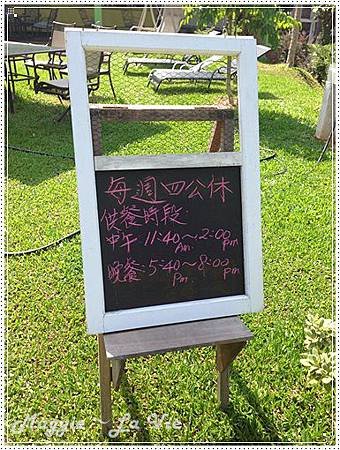 每週四公休
供餐時段
中午 11:40~2:00
Am. pm
晚餐:5:40~8:00
Pm. pm
Maggie ~ La Vie